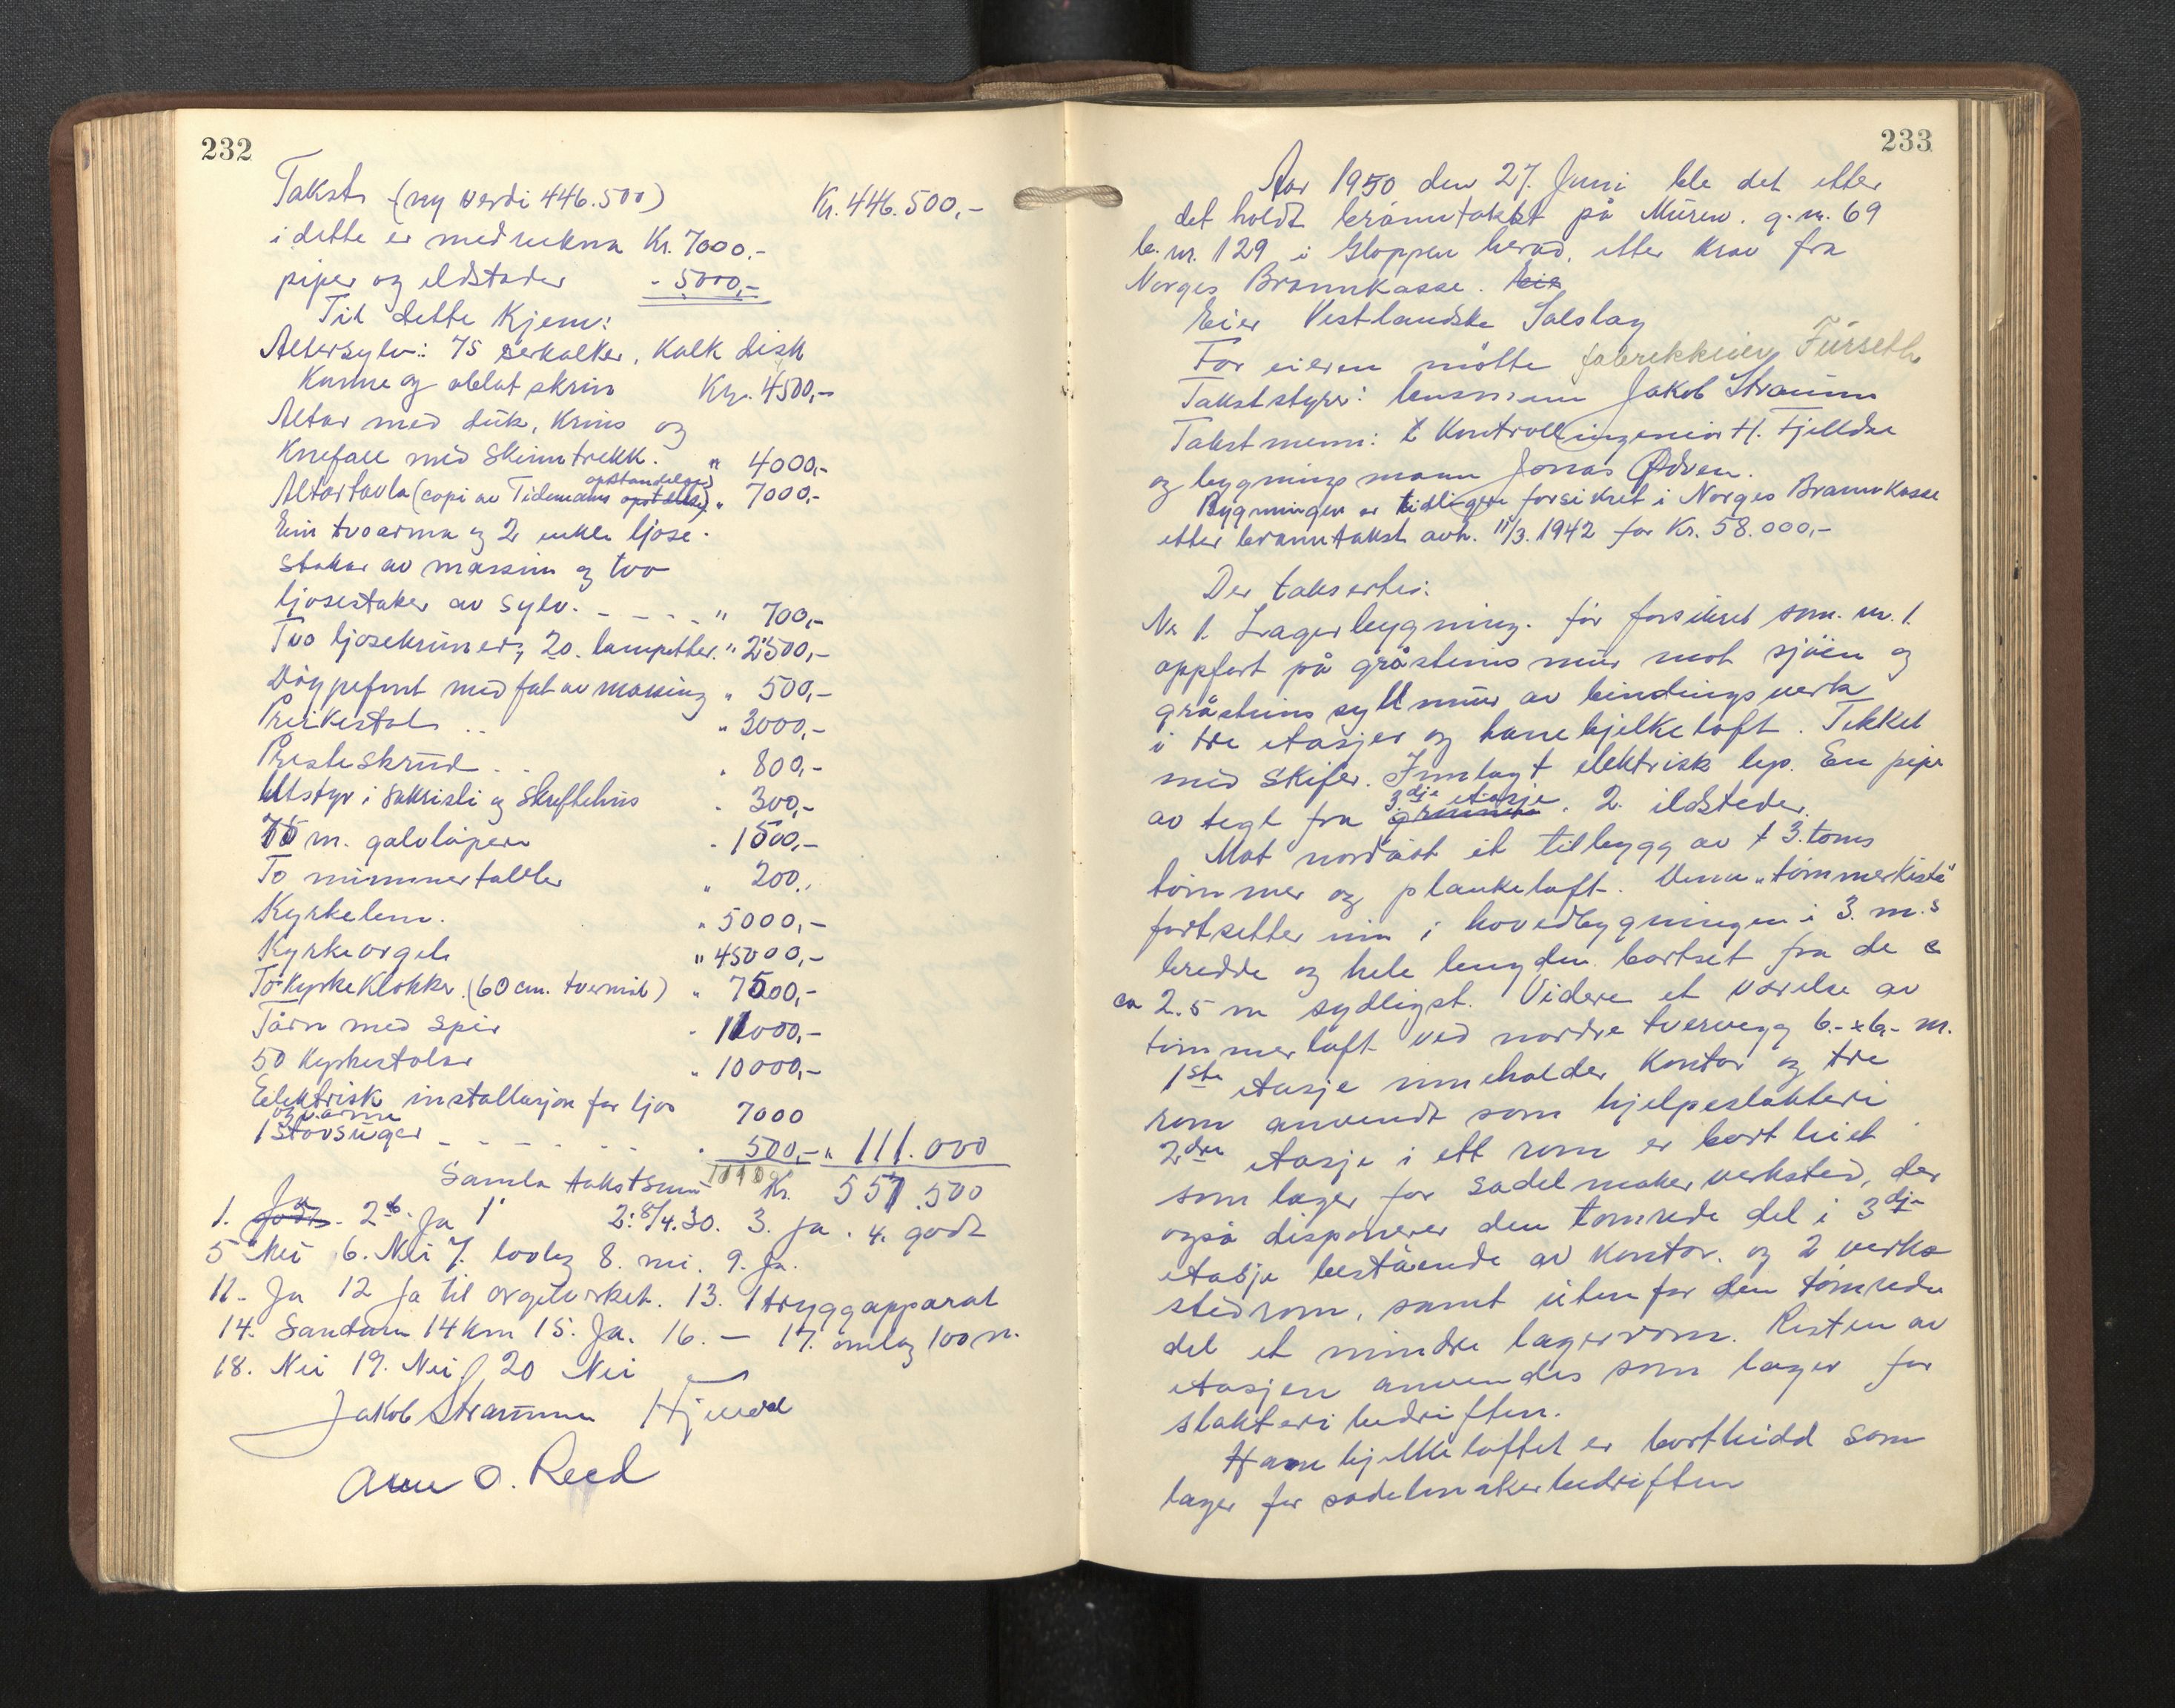 232
Takst (ny verdi 446.500) Kr. 446.500,-
i dette er medrekna Kr. 7000.-
piper og eldstader - 5000,-
Til dette kjem:
Altersylv: 75 serkalker, Kalk disk
Kanne og oblatskrin Kr. 4500,-
Altar med duk, krins og
Knefall med skinntrekk. " 4000,-
Altartavla (copi av Tidemans opstandelse) " 7000,-
Ein tvoarma og 2 enkle ljose-
stakar av messing og tvo
ljosestaker av sylv. - - - - " 700,-
Tvo ljosekruner, 20. lampetter. " 2500,-
Døypefont med fat av messing " 500,-
Preikestol .. " 3000,-
Presteskrud .. " 800,-
Utstyr i sakristi og skriftehus " 300,-
75 m. golvløpere " 1500,-
To nummertavler " 200.,
Kyrkelem. " 5000,-
Kyrkeorgel " 45000,-
To kyrkeklokker (60 cm. tvermål) " 7500,-
Tårn med spir " 11000,-
50 kyrkestolar " 10000,-
Eelektrisk installasjon for ljos
og varme 7000
1 støvsuger - - - - - - " 500,- " 111.000
Samla takstsum Kr. 557.500
1. Ja 2b. Ja 1 2: 8/4.30. 3. ja. 4. godt
5 Nei 6. Nei 7. lovleg 8. nei. 9. Ja.
11. Ja 12 Ja til orgelverket. 13. 1 tryggapparat
14. Sandane 14 km 15. Ja. 16. — 17. omlag 100 m.
18. Nei 19. Nei 20 Nei
Jakob Straumme
Arne O. Reed
233
Aar 1950 den 27. Juni ble det etter
det holdt branntakst på Muren. g.nr. 69
b.nr. 129 i Gloppen herad, etter krav fra
Norges Brannkasse. Eie
Eier Vestlandske Salslag
For eieren møtte fabrikkeier Furseth
Takststyrer: lensmann Jakob Straume
Takstmenn: Kontrollingeniør H. Fjelldal
og bygningsmann Jonas Ødven.
Bygningen er tidligere forsikret i Norges Brannkasse
etter branntakst avh. 11/3. 1942 for Kr. 58.000,-
Der taksertes:
Nr 1. Lagerbygning. før forsikret som nr. 1.
oppført på gråsteins mur mot sjøen og
gråsteins syllmur av bindingsverk
i tre etasjer og hanebjelkeloft. Tekket
med skifer. Innlagt elektrisk lys. En pipe
av tegl fra 3.dje etasje grunnen. 2. ildsteder.
Mot nordøst et tilbygg av 3. toms
tømmer og plankeloft. Denne "tømmerkiste"
fortsetter inn i hovedbygningen i 3. m.s
bredde og hele lengden bortset fra de
ca 2.5 m sydligst. Videre et værelse av
tømmerloft ved nordre tvervegg 6.- x 6.- m.
1ste etasje inneholder kontor og tre
rom anvendt som hjelpeslakteri.
2dre etasje i ett rom er bortleiet
som lager for sadelmakerverksted, der
også disponerer den tømrede del i 3dje
etasje bestående av kontor. og 2 verk-
stedrom, samt utenfor den tømrede
del et mindre lagerrom. Resten av
etasjen anvendes som lager for
slakteribedriften.
Hanebjelkeloftet er bortleidd som
lager for sadelmakerbedriften